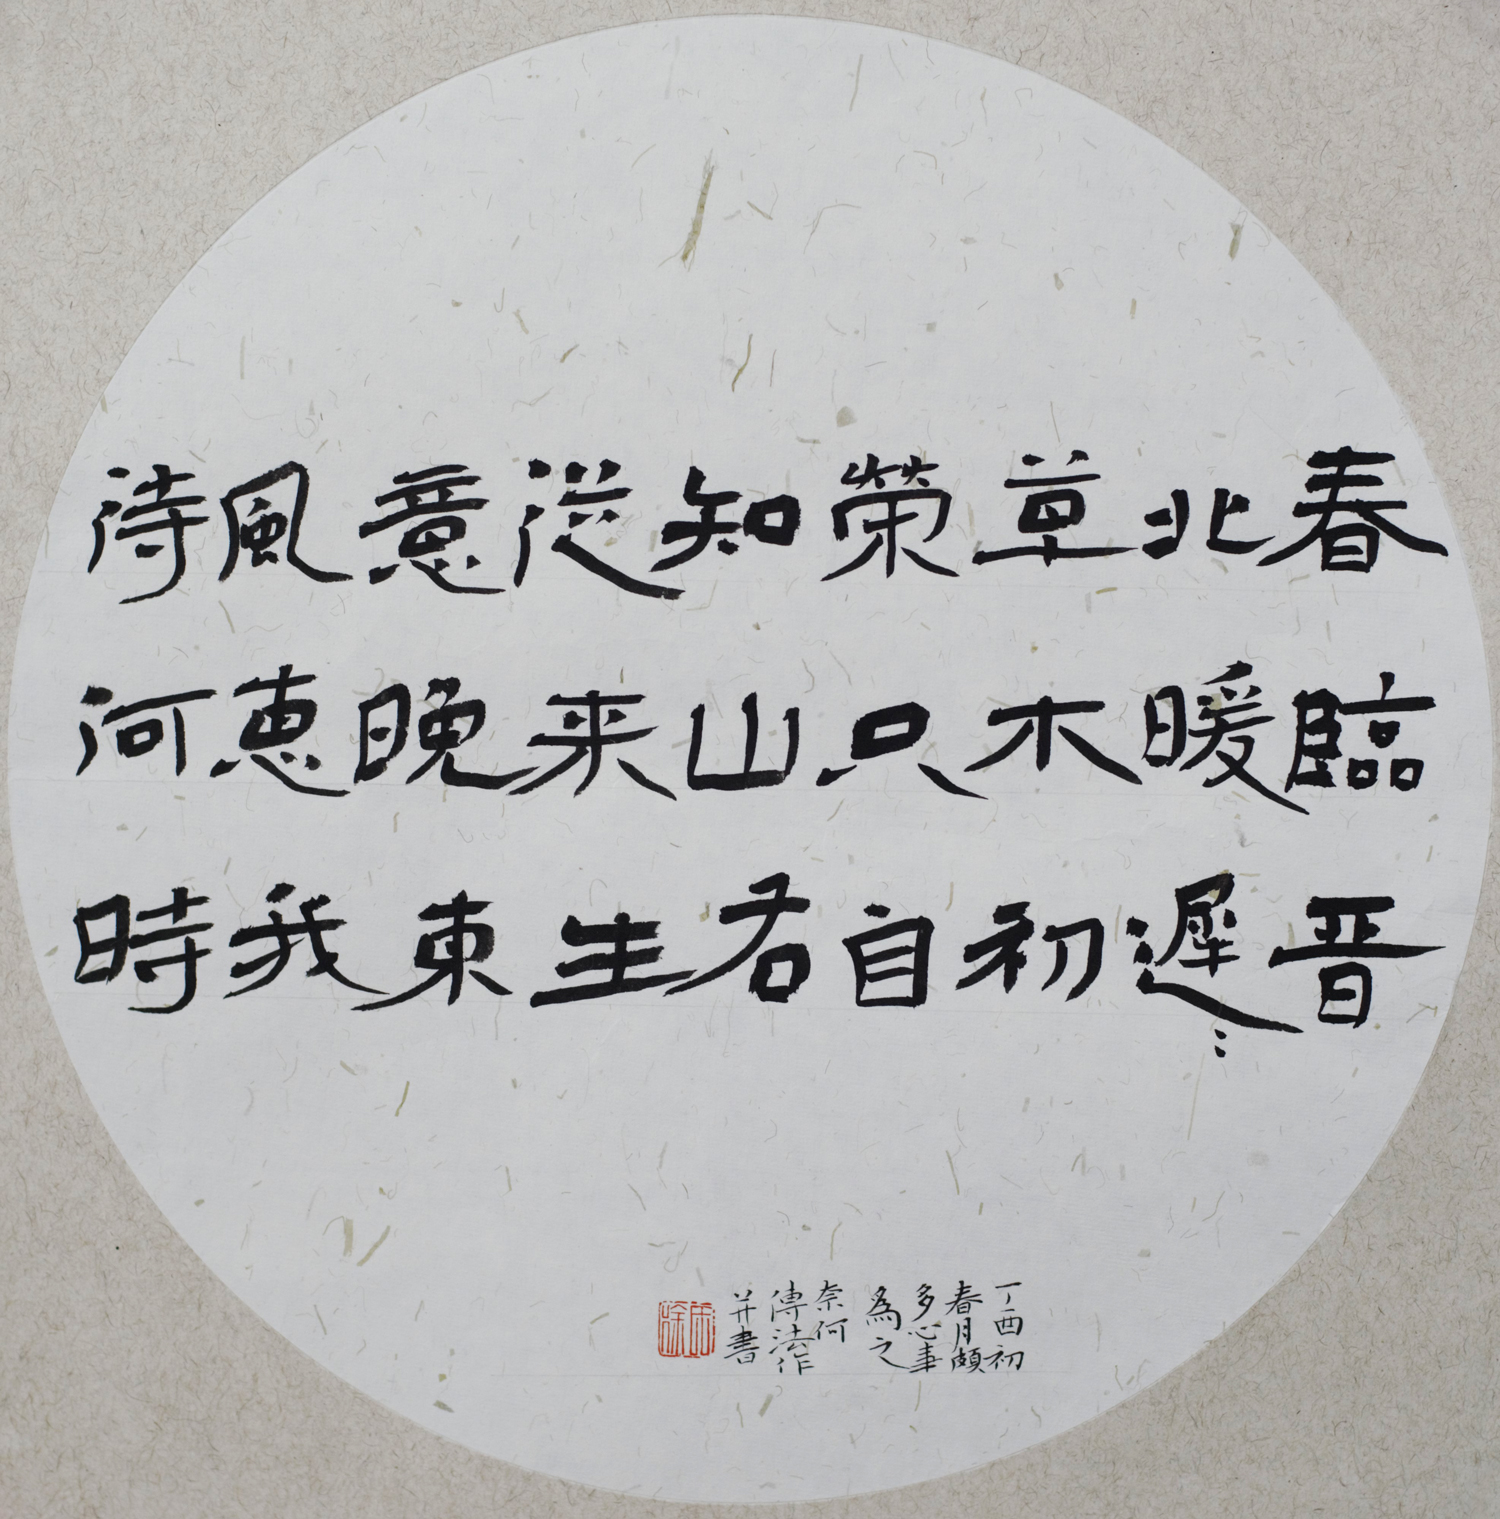 春臨晋
北暖遲〻
草木初
榮只自
知山右
從来生
意晚東
風恵我
待何時
丁酉初
春月頗
多心事
為之
奈何
傳法作
并書